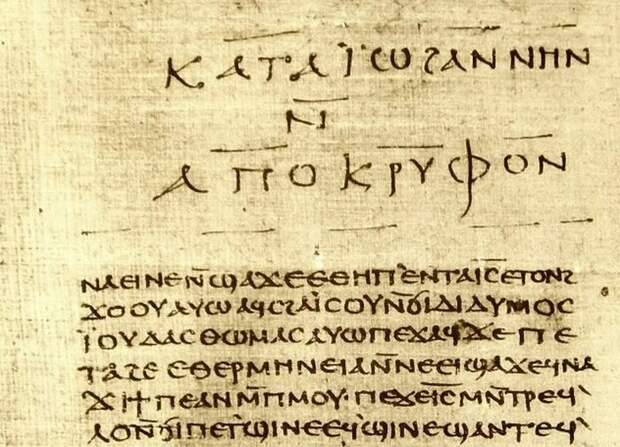 ⲕⲁⲧⲁ ⲓ̈ⲱϩⲁⲛⲛⲏⲛ
ⲛ̅
ⲁⲡⲟⲕⲣⲩⲫⲟⲛ
ⲛⲁⲉⲓⲛⲉⲛ̅ϣⲁϫⲉⲉⲑⲏⲡ'ⲉⲛⲧⲁⲓ̅ⲥ̅ⲉⲧⲟⲛϩ
ϫⲟⲟⲩⲁⲩⲱⲁϥⲥϩⲁⲓ̈ⲥⲟⲩⲛ̅ϭⲓⲇⲓⲇⲩⲙⲟⲥ
ⲓ̈ⲟⲩⲇⲁⲥⲑⲱⲙⲁⲥⲁⲩⲱⲡⲉϫⲁϥϫⲉⲡⲉ
ⲧⲁϩⲉⲉⲑⲉⲣⲙⲏⲛⲉⲓⲁⲛ̅ⲛⲉⲉⲓϣⲁϫⲉϥⲛⲁ
ϫⲓϯⲡⲉⲁⲛⲙ̅ⲡⲙⲟⲩ·ⲡⲉϫⲉⲓ̅ⲥ̅ⲙⲛ̅ⲧⲣⲉϥ'
ⲗⲟⲛ̅ϭⲓⲡⲉⲧ'ϣⲓⲛⲉⲉϥϣⲓⲛⲉϣⲁⲛⲧⲉϥ'